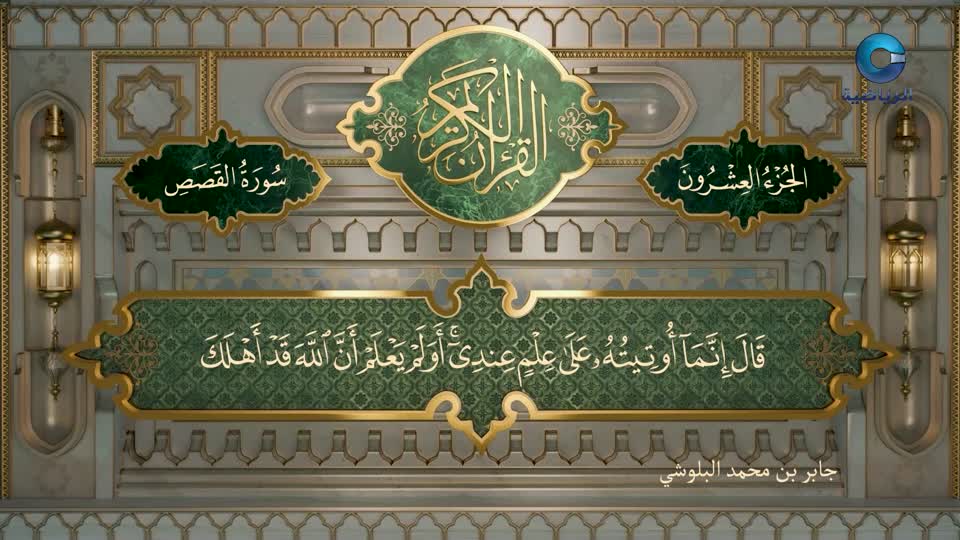 الرياضية
القرآن الكريم
الجُزْءُ العِشْرُونَ
سُورَةُ القَصَصِ
قَالَ إِنَّمَآ أُوتِيتُهُۥ عَلَىٰ عِلْمٍ عِندِىٓ ۚ أَوَلَمْ يَعْلَمْ أَنَّ ٱللَّهَ قَدْ أَهْلَكَ
جابر بن محمد البلوشي